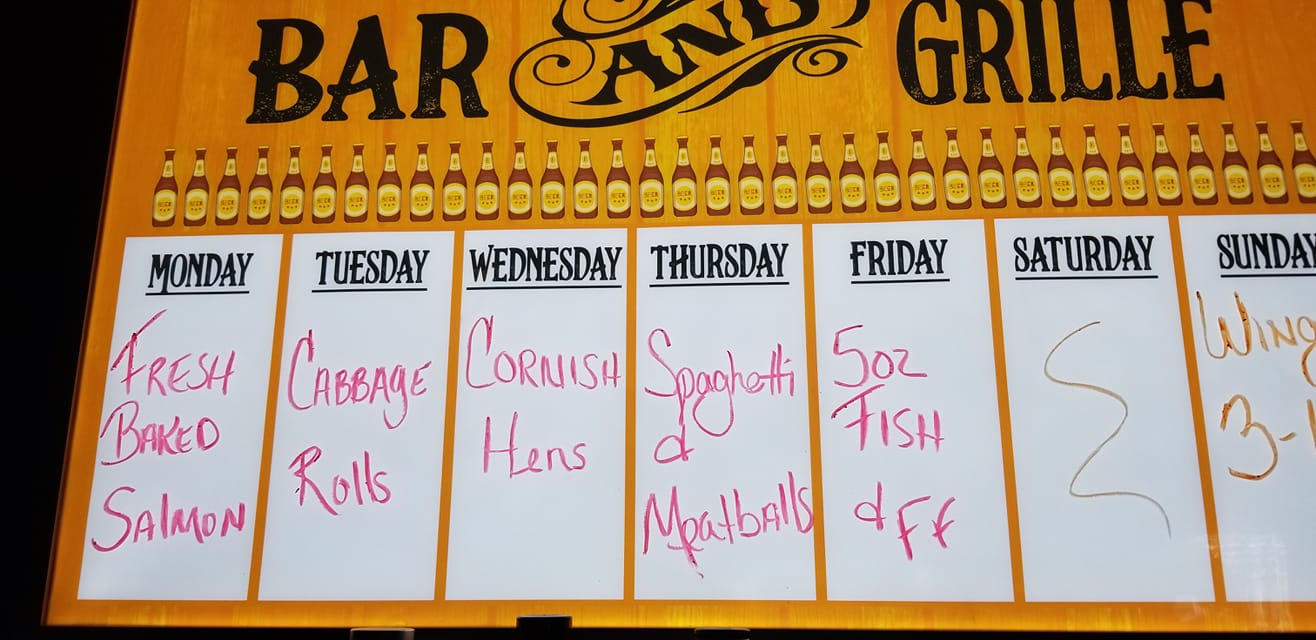 BAR AND GRILLE
MONDAY
FRESH
BAKED
SALMON
TUESDAY
CABBAGE
Rolls
WEDNESDAY
CORNISH
Hens
THURSDAY
Spaghetti
&
Meatballs
FRIDAY
5oz
FISH
& FF
SATURDAY
SUNDAY
WING
3-